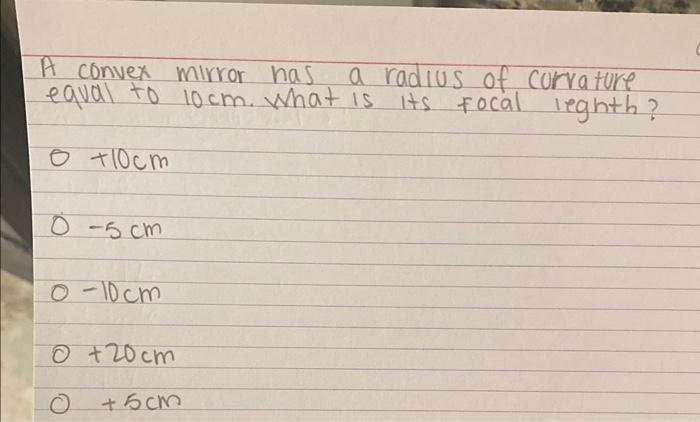 A convex mirror has a radius of curvature
equal to 10cm. What is its focal leghth?
O +10cm
O -5 cm
O -10cm
O +20cm
O +5cm